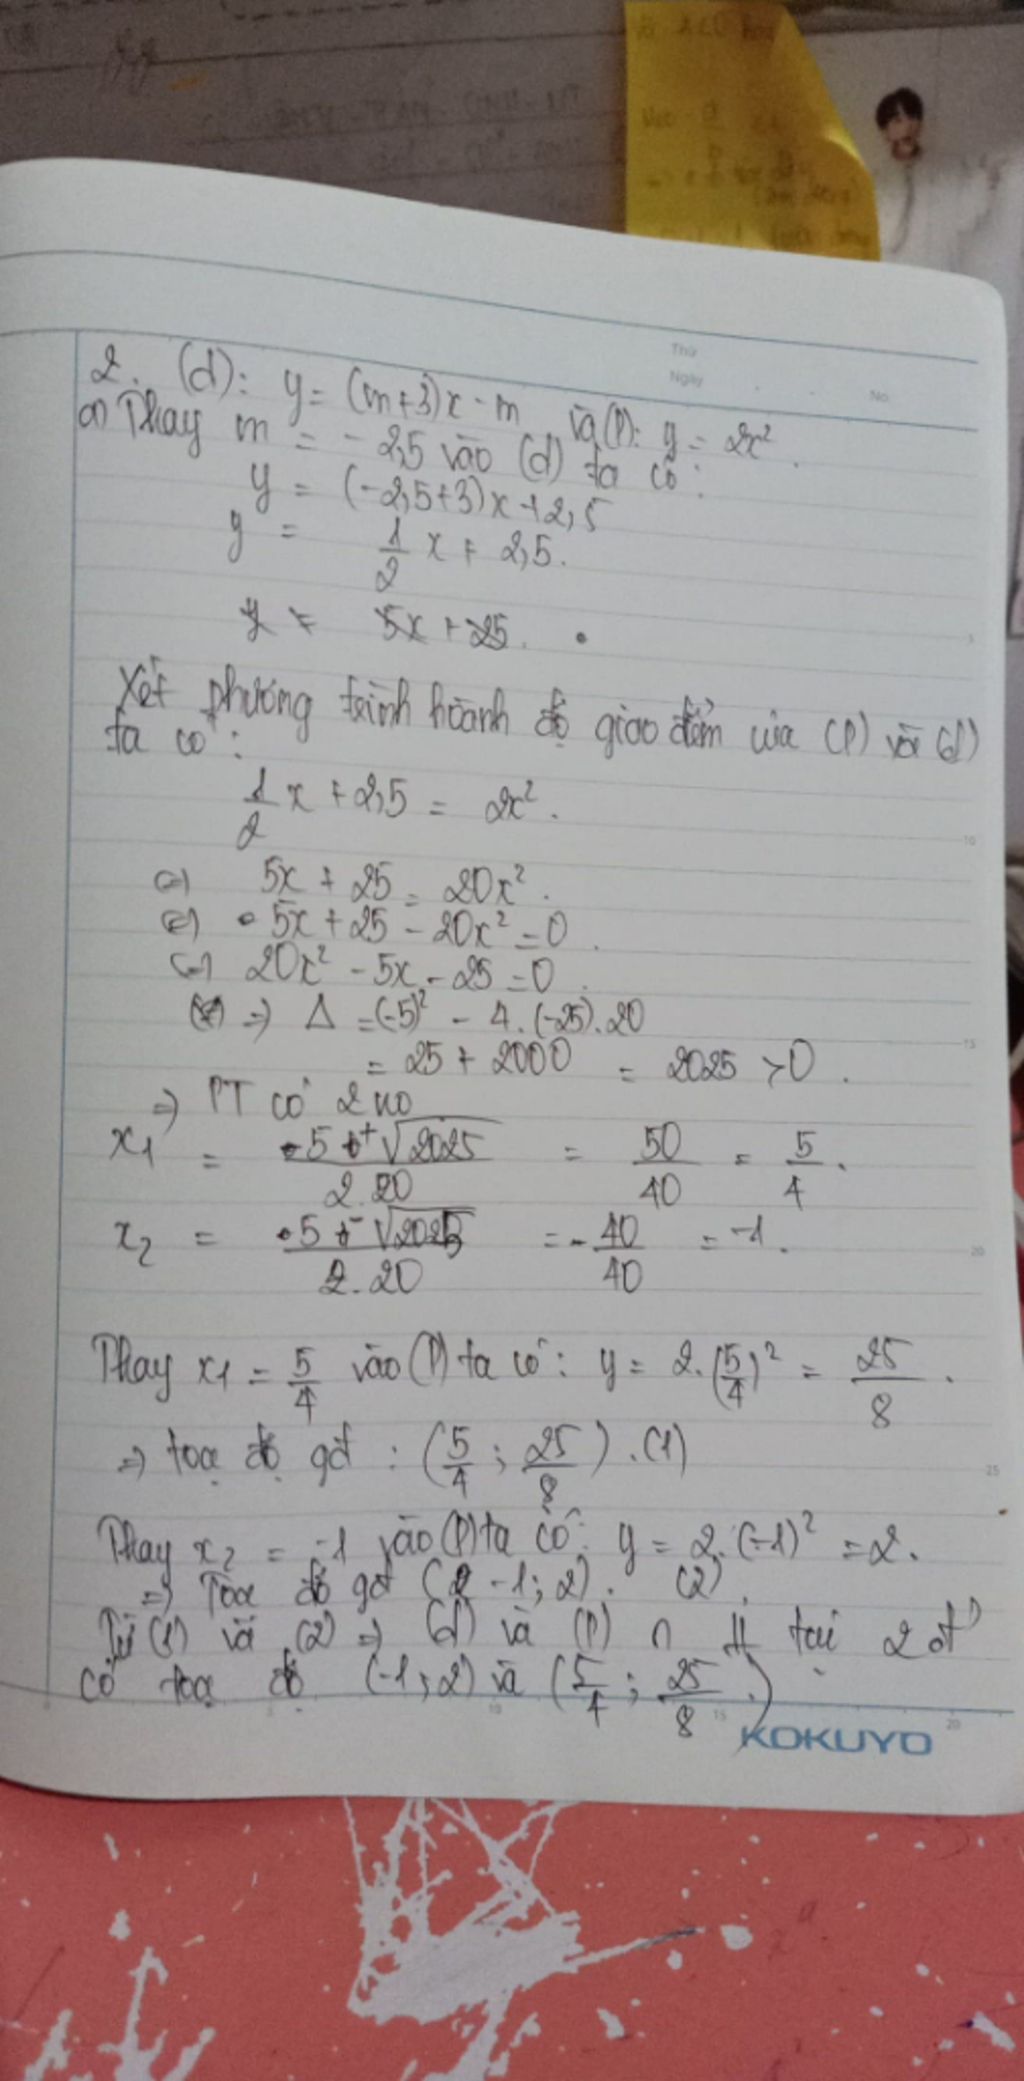 Thứ
Ngày
No.
2. (d): y = (m+3)x - m và (P): y = 2x².
a) Thay m = -2,5 vào (d) ta có:
y = (-2,5+3)x + 2,5
y = 1/2 x + 2,5.
y = 5x + 25.
Xét phương trình hoành độ giao điểm của (P) và (d)
ta có:
1/2 x + 2,5 = 2x².
(=) 5x + 25 = 20x².
(=) 5x + 25 - 20x² = 0.
(=) 20x² - 5x - 25 = 0.
=> Δ = (-5)² - 4.(-25).20
= 25 + 2000 = 2025 > 0.
=> PT có 2 no
x1 = 5 + √2025 / 2.20 = 50/40 = 5/4.
x2 = 5 - √2025 / 2.20 = - 40/40 = -1.
Thay x1 = 5/4 vào (P) ta có: y = 2.(5/4)² = 25/8.
=> toạ độ gđ : (5/4 ; 25/8). (1)
Thay x2 = -1 vào (P) ta có: y = 2.(-1)² = 2.
=> Toạ độ gđ (-1; 2). (2).
Từ (1) và (2) => (d) và (P) ∩ tại 2 đ'
có toạ độ (-1; 2) và (5/4 ; 25/8.)
KOKUYO